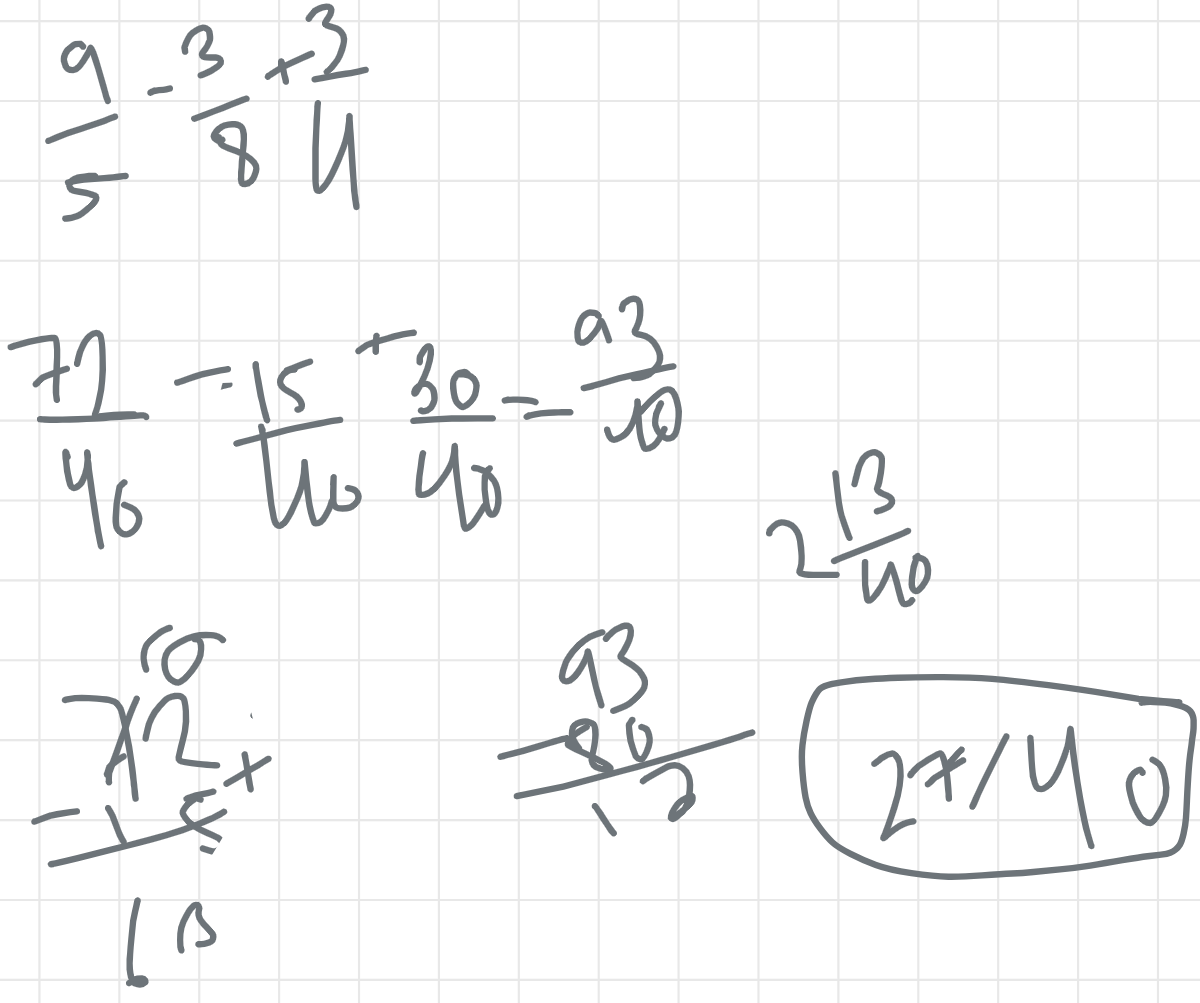 9/5 - 3/8 + 3/4
72/40 - 15/40 + 30/40 = 93/40
2 13/40
72
- 15
93
80
13
27/40